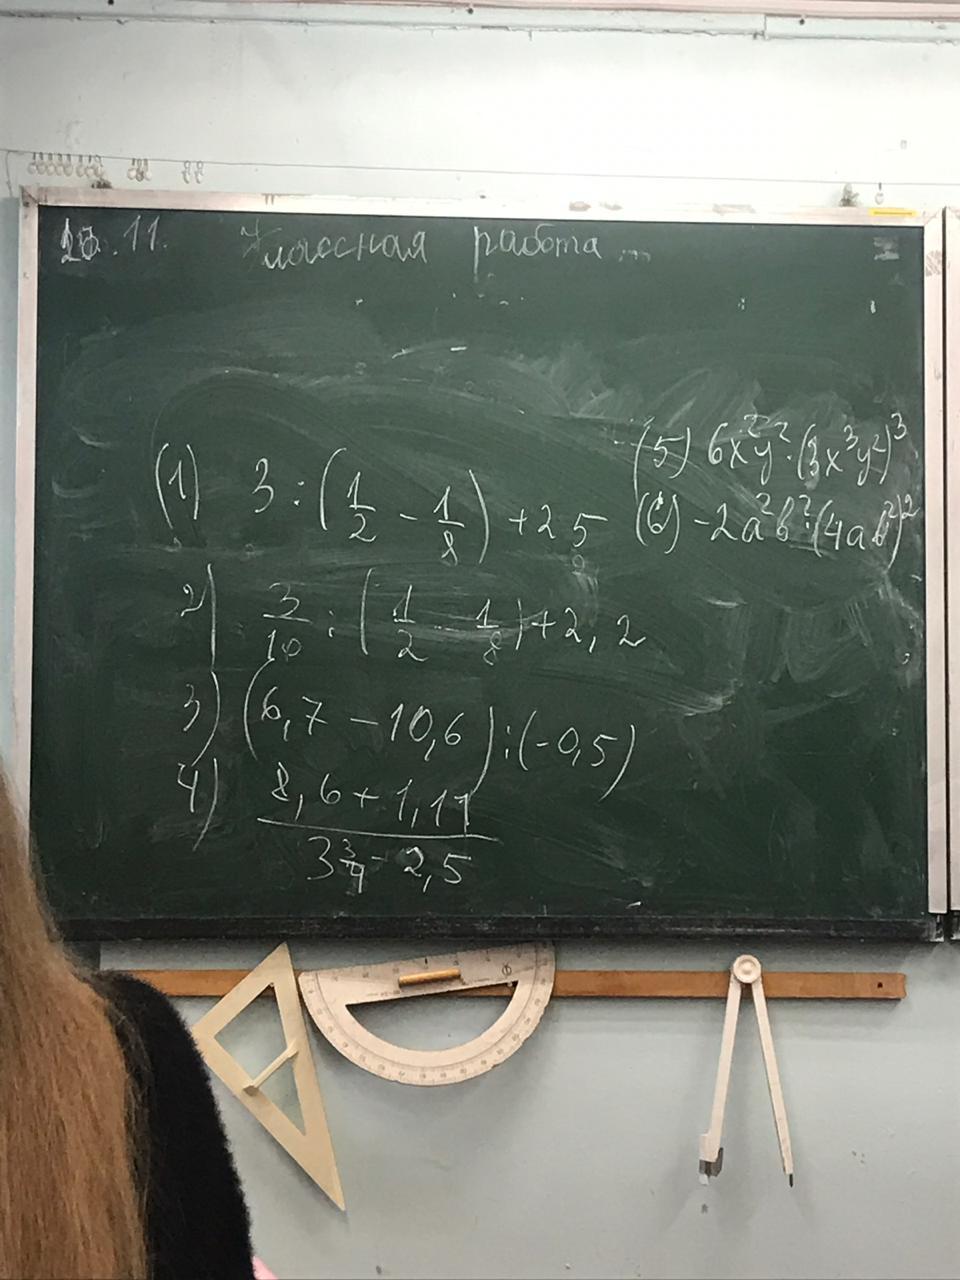 .11. Классная работа
(1) 3 : (1/2 - 1/8) + 2 5
2) 3/10 : (1/2 - 1/8) + 2,2
3) (6,7 - 10,6) : (-0,5)
4) (8,6 + 1,11)/(3 3/4 - 2,5)
(5) 6x²y² · (3x³y²)³
(6) -2a²b² · (4ab²)²